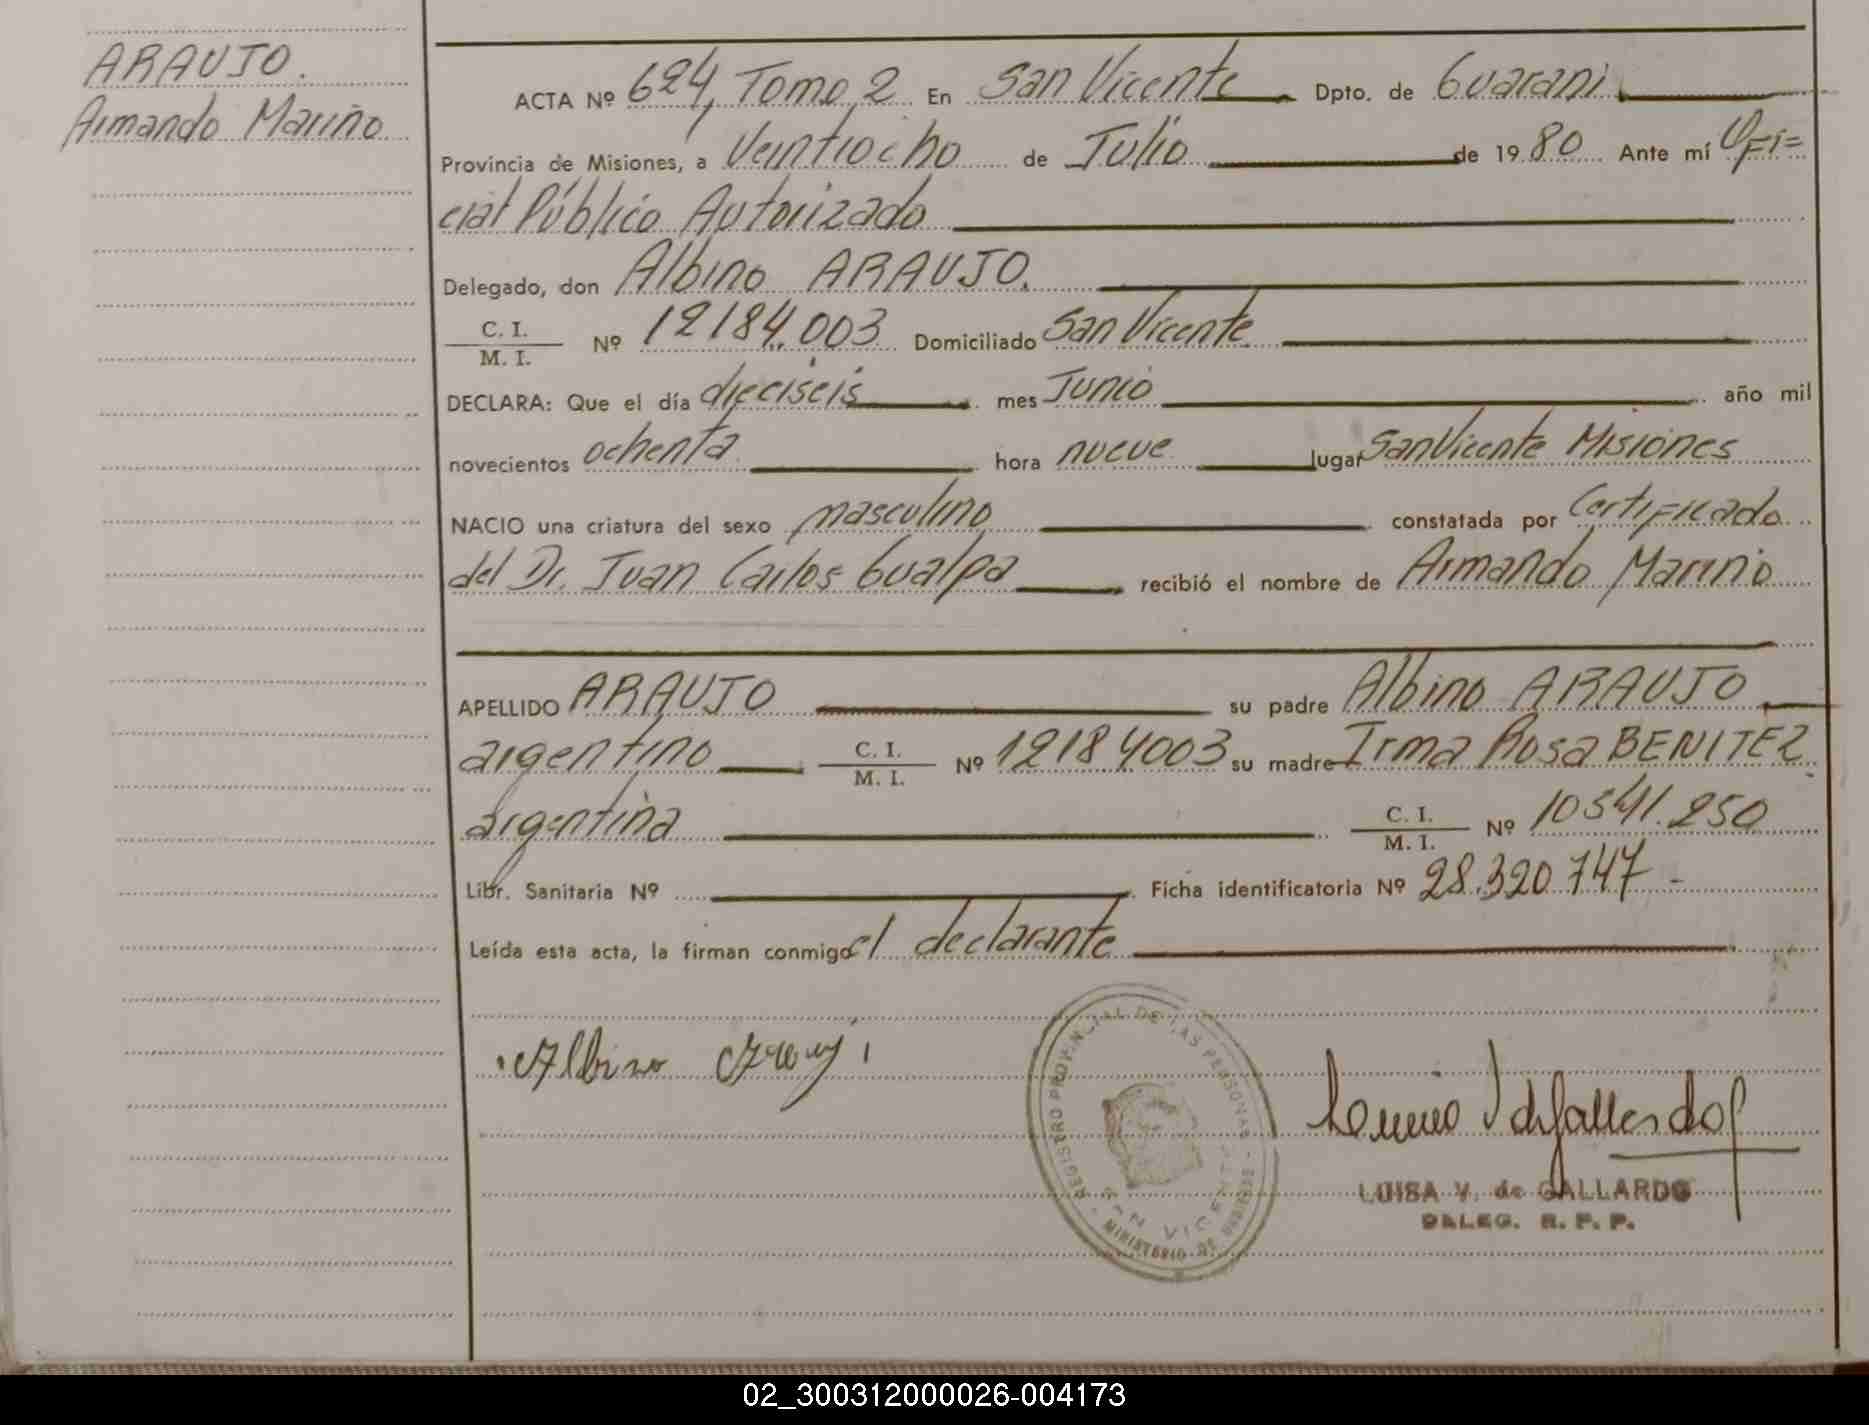 ARAUJO.
Armando Mariño
ACTA Nº 624, Tomo 2 En San Vicente Dpto. de Guarani
Provincia de Misiones, a Veintiocho de Julio de 1980 Ante mí Ofi=
cial Público Autorizado
Delegado, don Albino ARAUJO.
C. I.
M. I.
Nº 12184.003 Domiciliado San Vicente
DECLARA: Que el día dieciseis mes Junio año mil
novecientos ochenta hora nueve lugar San Vicente Misiones
NACIO una criatura del sexo masculino constatada por Certificado
del Dr. Juan Carlos Gualpa recibió el nombre de Armando Mariño
APELLIDO ARAUJO su padre Albino ARAUJO
argentino C. I.
M. I.
Nº 12184003 su madre Irma Rosa BENITEZ
argentina C. I.
M. I.
Nº 10541.250
Libr. Sanitaria Nº Ficha identificatoria Nº 28.320.747 -
Leída esta acta, la firman conmigo el declarante
Albino
REGISTRO PROVINCIAL DE LAS PERSONAS
SAN VICENTE
MINISTERIO DE
LUISA V. de GALLARDO
DELEG. R. P. P.
02_300312000026-004173